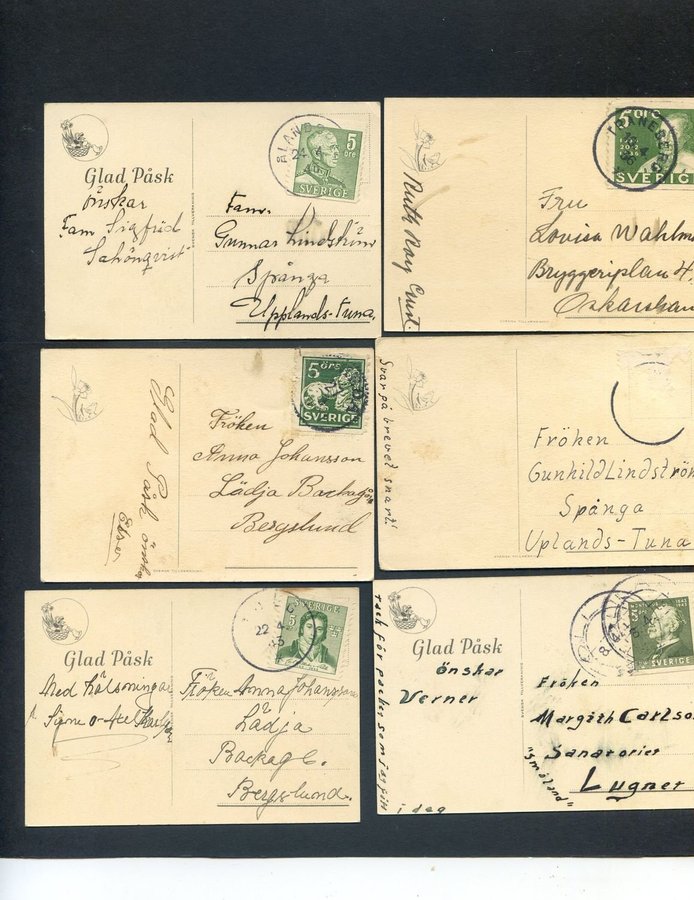 Glad Påsk
önskar
Fam Sigfrid
ÅLAND
5
öre
SVERIGE
Fam.
Gunnar Lindström
Spånga
Upplands-Tuna.
Ruth Roy
5 ÖRE
TRANEBERG
SVERIGE
Fru
Lovisa Wahlm
Bryggeriplan 4.
Oskarsham
Glad Påsk önskar
5 ÖRE
SVERIGE
Fröken
Anna Johansson
Lädja Backagår
Bergslund
Svar på brevet snart!
Fröken
Gunhild Lindström
Spånga
Uplands-Tuna
Glad Påsk
Med hälsningar
Signe o
22 4
SVERIGE
5
Fröken Anna Johansson
Lädja
Backag.
Bergslund.
Glad Påsk
önskar
Verner
tack för packet som jag fin
i dag
5
SVERIGE
Fröken
Margith Carlso
Sanatoriet
"Småland"
Lugnet